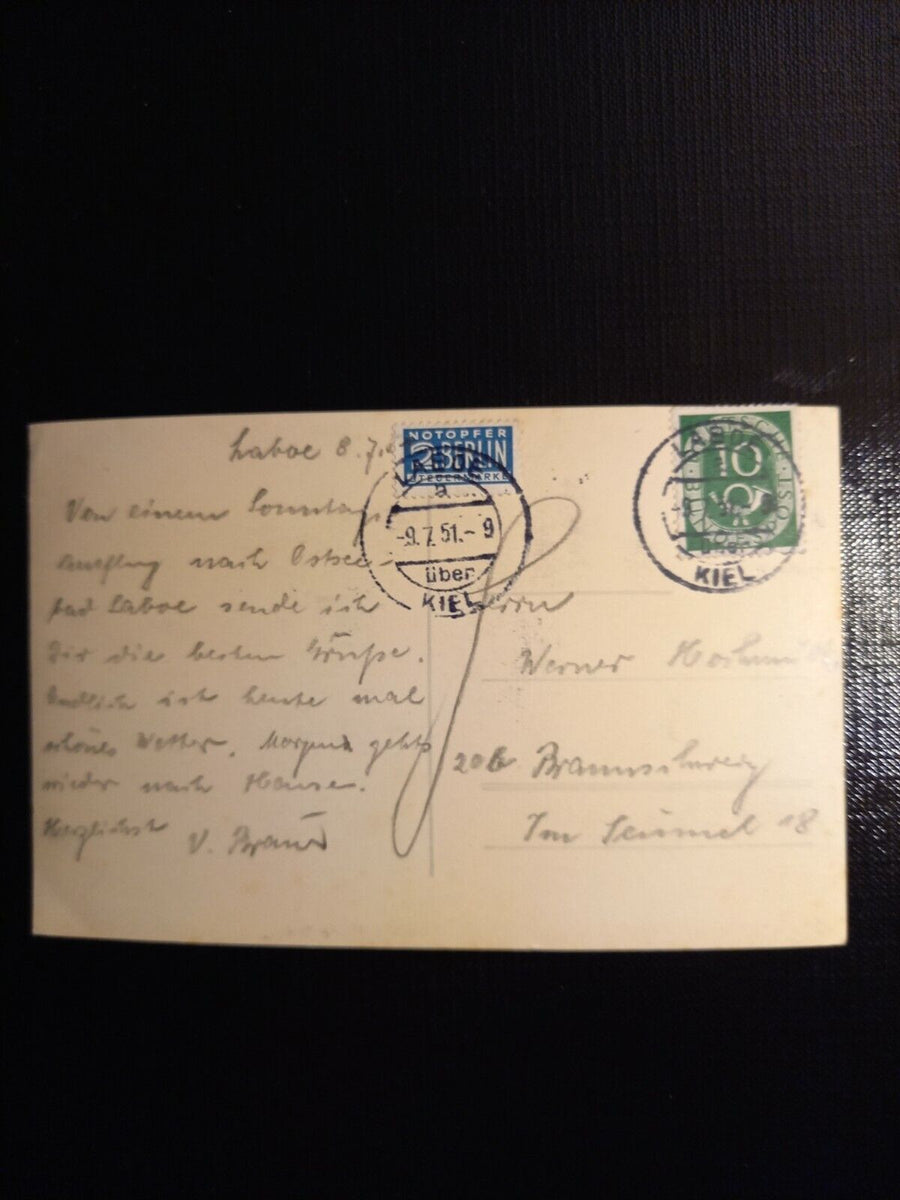 Laboe 8.7.
NOTOPFER
2 BERLIN
STEUERMARKE
LABOE
a
-9.7.51.-9
über
KIEL
DEUTSCHE
10
BUNDESPOST
LABOE
über
KIEL
Von einem Sonntags
ausflug nach Ostsee-
bad Laboe sende ich
Dir die besten Grüße.
Endlich ist heute mal
schönes Wetter. Morgen geht's
wieder nach Hause.
Herzlichst V. Braun
Herrn
Werner
20b Braunschweig
Im 18